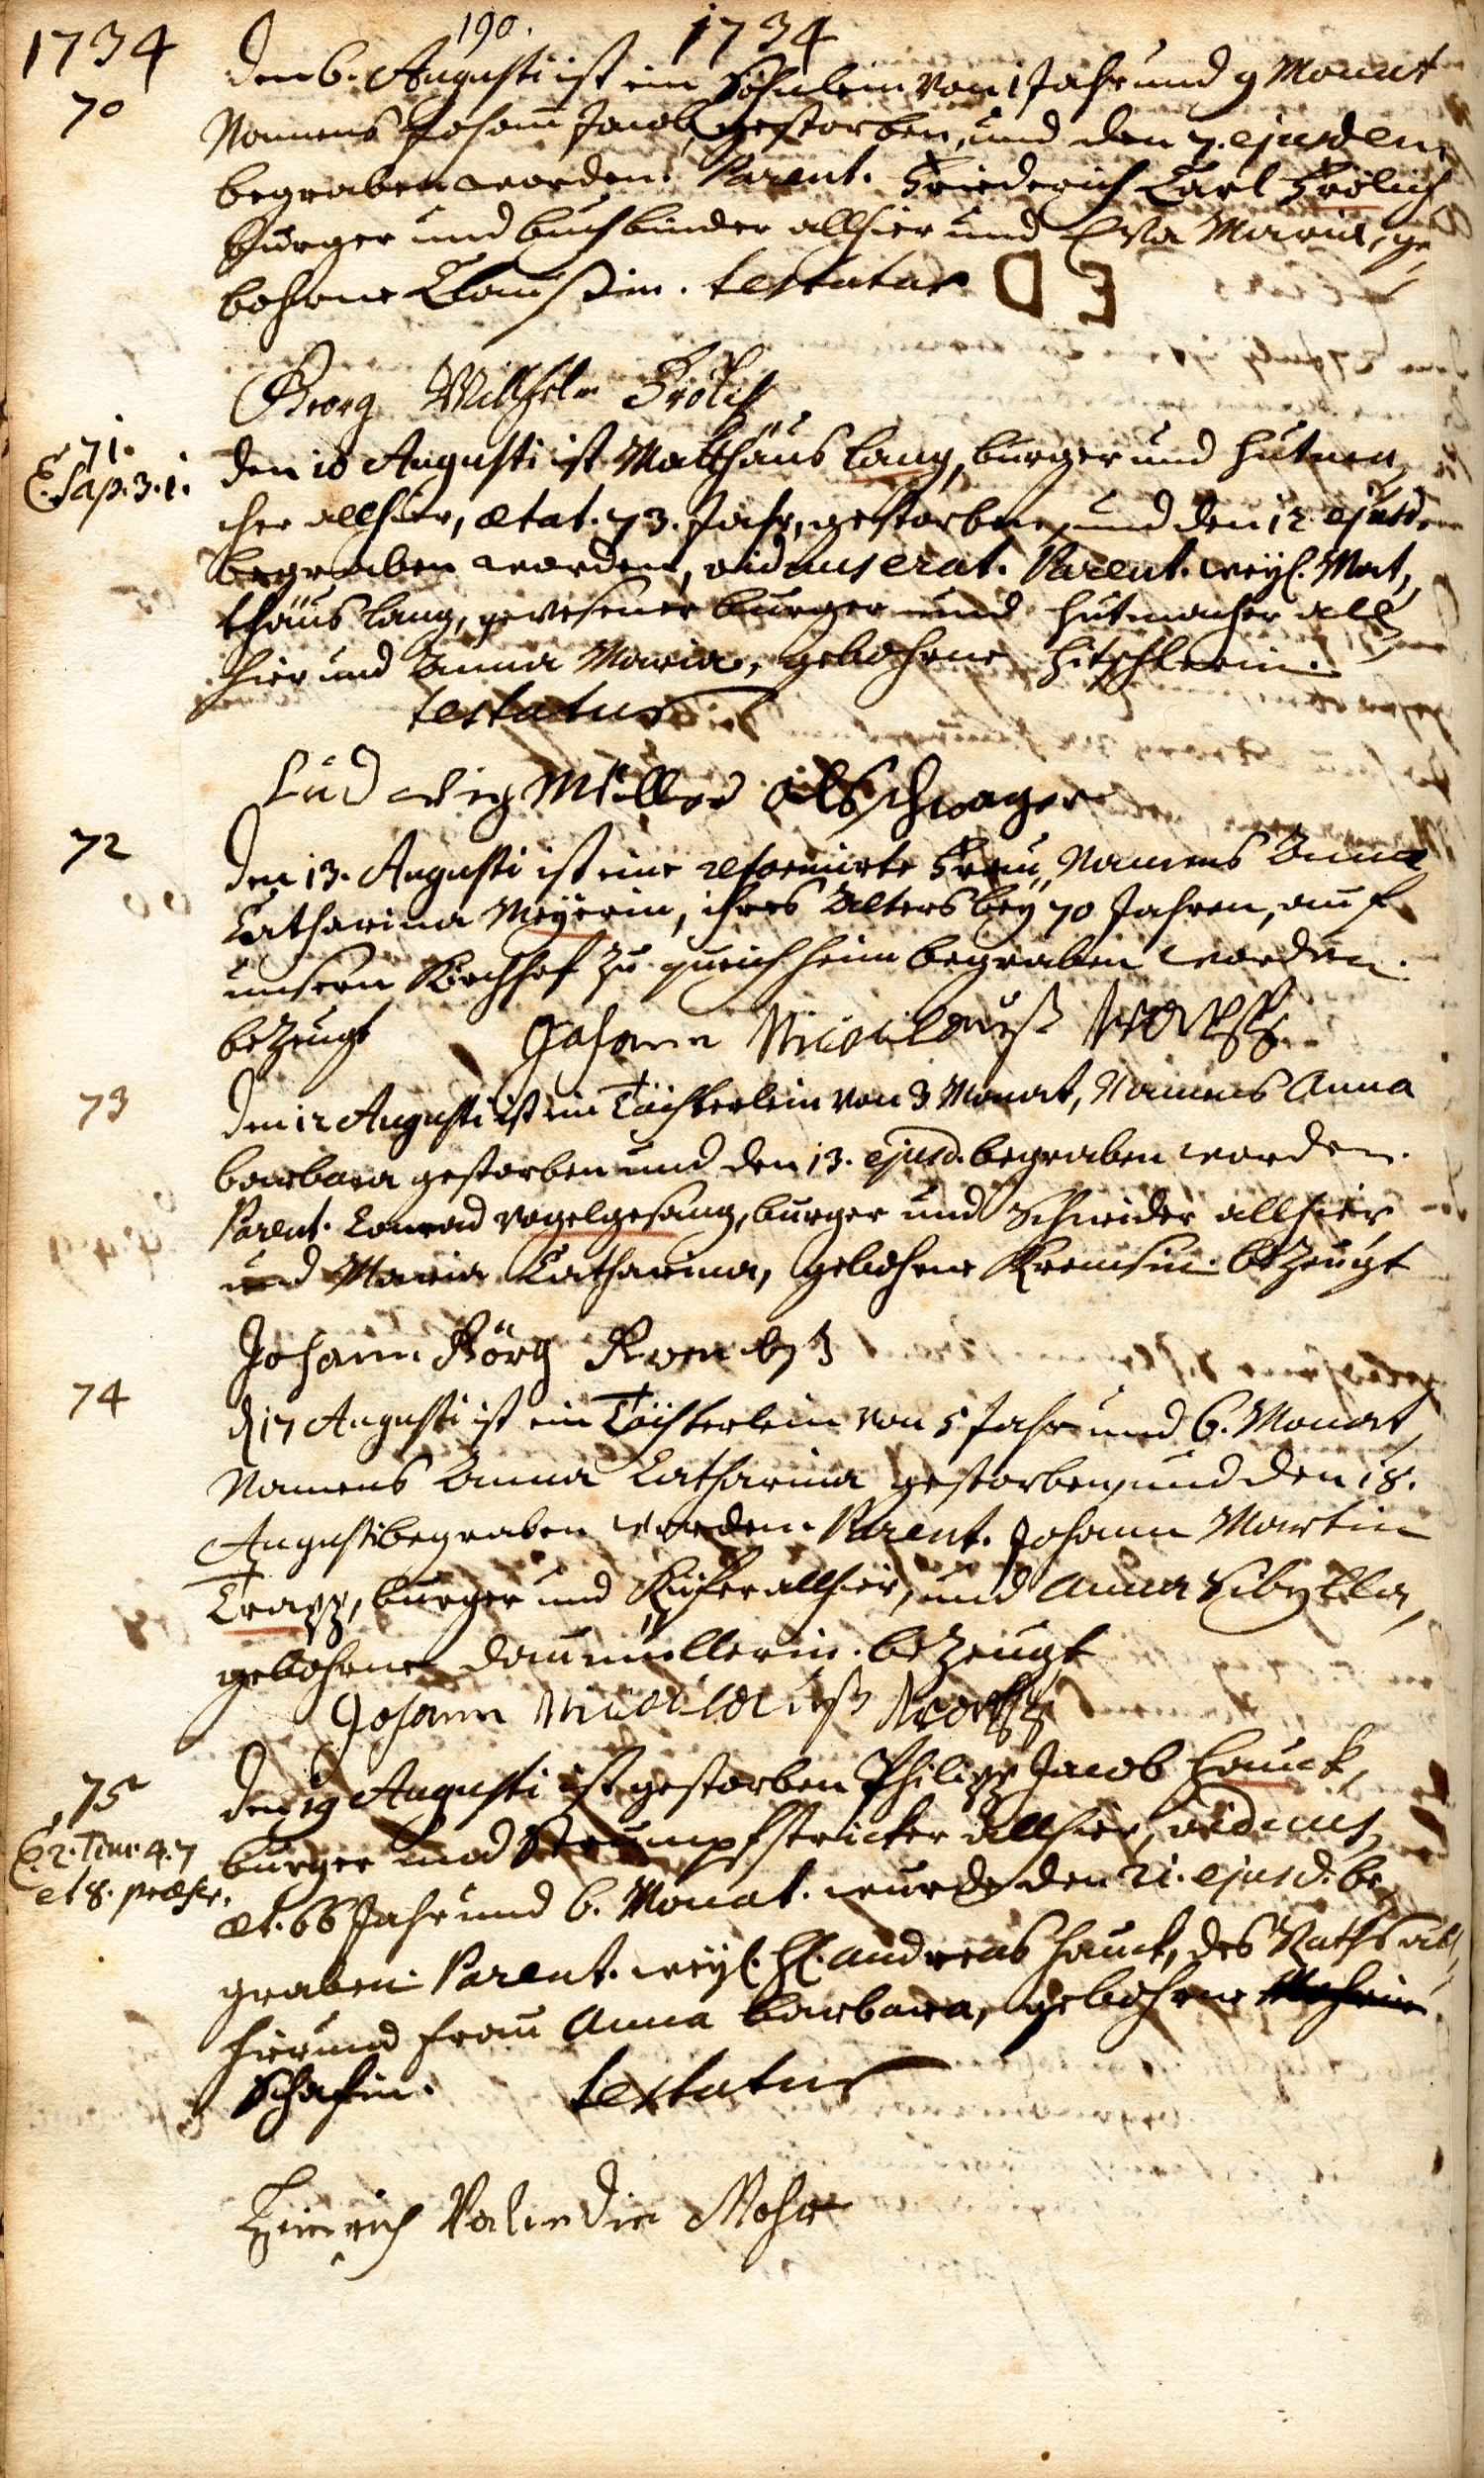 190.
1734 1734
70
den 6. Augusti ist ein Söhnlein von 1 Jahr und 9 Monat
Namens Johann Jacob, gestorben, und den 7. ejusdem
begraben worden. Parent. Friederich Carl Frölich
burger und buchbinder allhier und Eva Maria, ge-
bohrne testatur
Georg Willhelm Frölich
71.
C. Sap. 3. 1.
den 10 Augusti ist Matthäus Lang, burger und hutma-
cher allhier, ætat. 73. Jahr, gestorben, und den 12 ejusdem
begraben worden, viduus erat. Parent. weyl. Mat-
thäus Lang, gewesener burger und hutmacher all-
hier und Anna Maria, gebohrne Hitschlerin.
testatur
Ludwig Müller als schwager
72
den 13. Augusti ist eine reformirte Frau, Namens Anna
Catharina Meÿerin, ihres Alters beÿ 70 Jahren, auf
unsern Kirchhof zu queichheim begraben worden.
bezeugt Johann
73
den 12 Augusti ist ein Töchterlein von 3 Monat, Namens Anna
barbara gestorben und den 13. ejusd. begraben worden.
Parent. Conrad Vogelgesang, burger und Schneider allhier
und Maria Catharina, gebohrne bezeugt
Johann Görg
74
d 17 Augusti ist ein Töchterlein von 5 Jahr und 6. Monat,
Namens Anna Catharina gestorben, und den 18.
Augusti begraben worden. Parent. Johann Martin
Trapp, burger und Küfer allhier, und Anna Sibylla,
gebohrne Dammüllerin. bezeugt
Johann
75
C. 2. Tim. 4. 7
et 8.
den 19 Augusti ist gestorben Philipp Jacob Hauck,
burger und Strumpfstricker allhier, viduus,
æt. 66 Jahr und 6. Monat. wurde den 21. ejusd. be-
graben. Parent. weyl. H. Andreas Hauck, des Raths all-
hier und Frau Anna barbara, gebohrne
Schafin. testatur
Heinrich Valendin Mohr